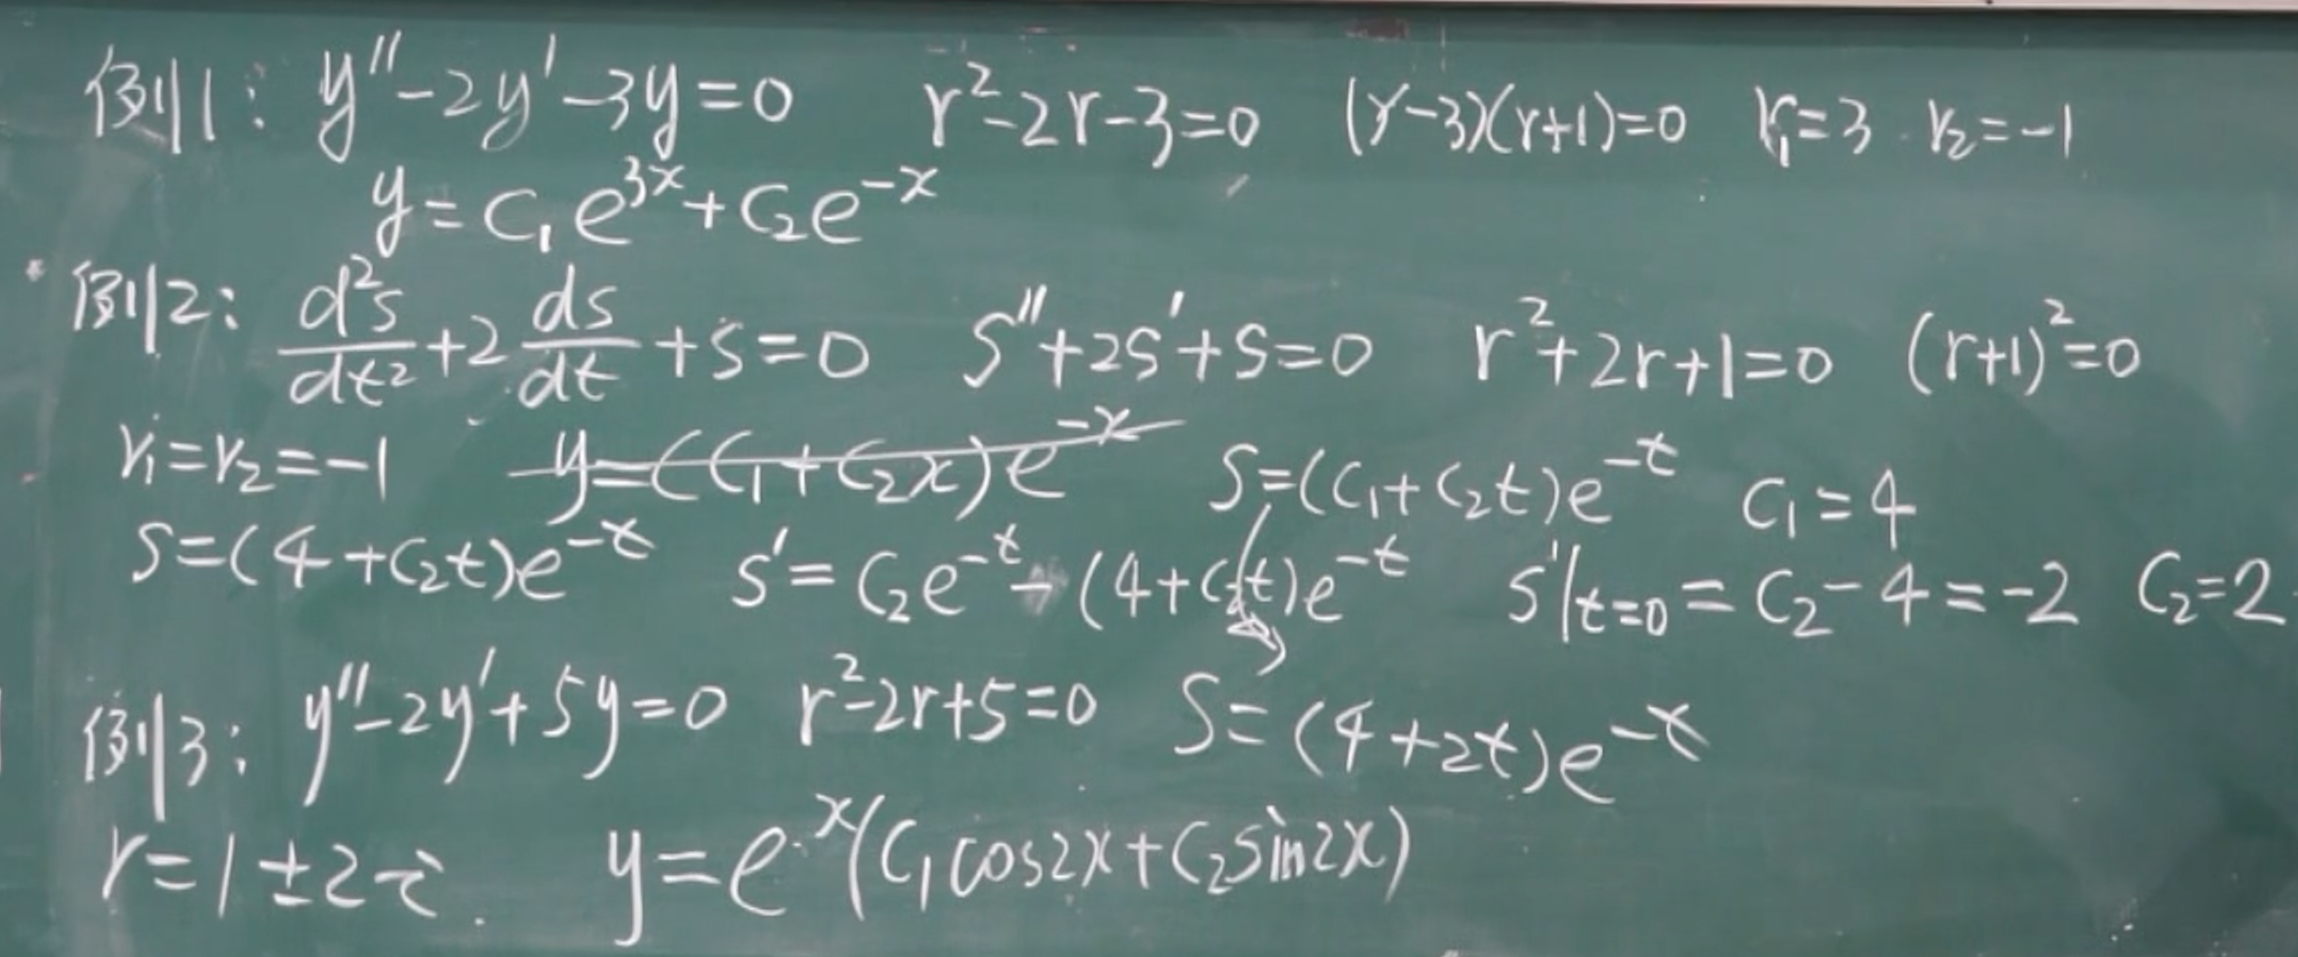 例1: y''-2y'-3y=0 r²-2r-3=0 (r-3)(r+1)=0 r₁=3 r₂=-1
y=C₁e^{3x}+C₂e^{-x}
例2: \frac{d²s}{dt²}+2\frac{ds}{dt}+s=0 s''+2s'+s=0 r²+2r+1=0 (r+1)²=0
r₁=r₂=-1 y=(C₁+C₂x)e^{-x} S=(C₁+C₂t)e^{-t} C₁=4
S=(4+C₂t)e^{-t} S'=C₂e^{-t}-(4+C₂t)e^{-t} S'|t=0=C₂-4=-2 C₂=2
例3: y''-2y'+5y=0 r²-2r+5=0 S=(4+2t)e^{-t}
r=1±2i. y=e^{x}(C₁cos2x+C₂sin2x)